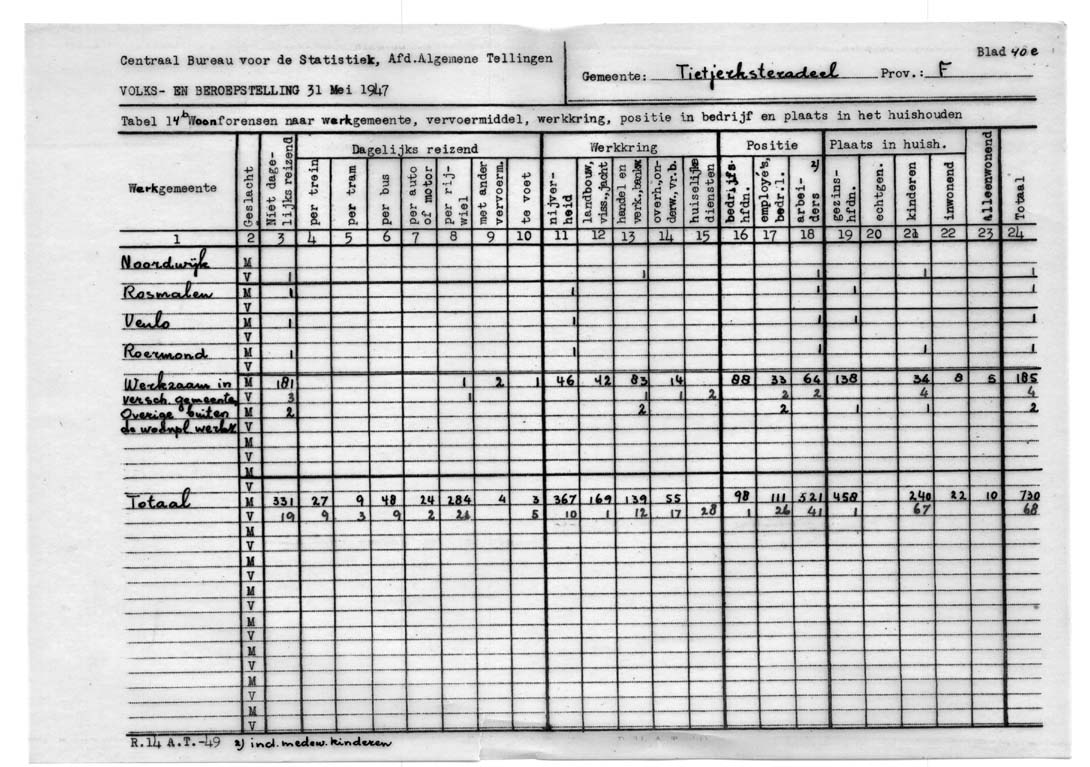 Blad 40e
Centraal Bureau voor de Statistiek, Afd.Algemene Tellingen
Gemeente: Tietjerksteradeel Prov.: F
VOLKS- EN BEROEPSTELLING 31 Mei 1947
Tabel 14b Woonforensen naar werkgemeente, vervoermiddel, werkkring, positie in bedrijf en plaats in het huishouden
Werkgemeente
Geslacht
Niet dage-
lijks reizend
Dagelijks reizend
per trein
per tram
per bus
per auto
of motor
per rij-
wiel
met ander
vervoerm.
te voet
Werkkring
nijver-
heid
landbouw,
viss.,jacht
handel en
verk.,bankw
overh.,on-
derw.,vr.b.
huiselijke
diensten
Positie
bedrijfs-
hfdn.
employé's,
bedr.l.
arbei- 2)
ders
Plaats in huish.
gezins-
hfdn.
echtgen.
kinderen
inwonend
alleenwonend
Totaal
1 2 3 4 5 6 7 8 9 10 11 12 13 14 15 16 17 18 19 20 21 22 23 24
Noordwijk M
V 1 1 1 1 1
Rosmalen M 1 1 1 1 1
V
Venlo M 1 1 1 1 1
V
Roermond M 1 1 1 1 1
V
Werkzaam in M 181 1 2 1 46 42 83 14 88 33 64 138 34 8 5 185
versch. gemeenten V 3 1 1 1 2 2 2 4 4
Overige buiten M 2 2 2 1 1 2
de woonpl. werkz V
M
V
M
V
Totaal M 331 27 9 48 24 284 4 3 367 169 139 55 98 111 521 458 240 22 10 730
V 19 9 3 9 2 21 5 10 1 12 17 28 1 26 41 1 67 68
M
V
M
V
M
V
M
V
M
V
M
V
M
V
R.14 A.T.-49 2) incl. medew. kinderen